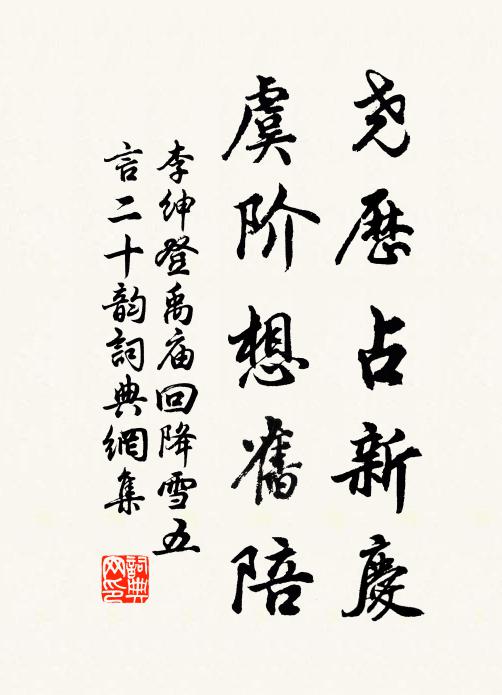 尧历占新慶
虞阶想舊陪
李绅登禹庙回降雪五
言二十韵詞典網集
詞典
网印